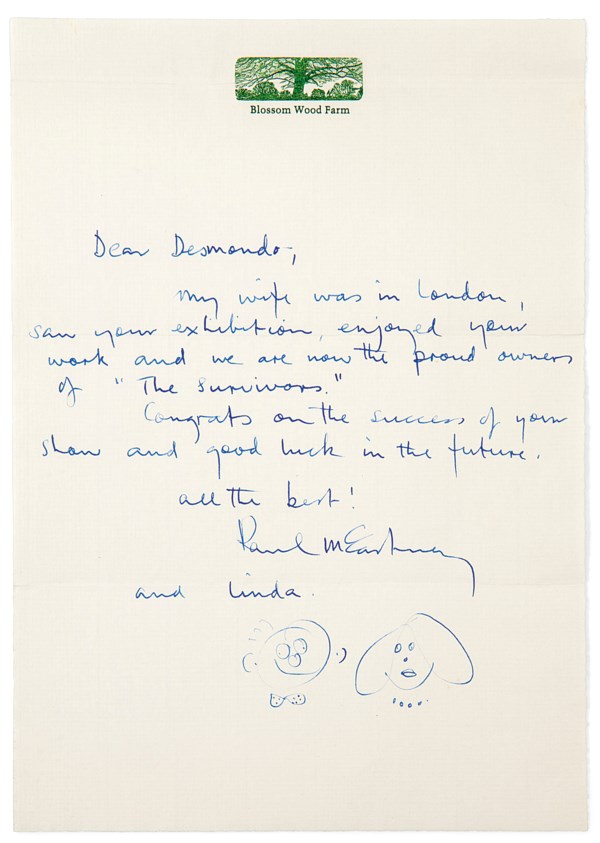 Blossom Wood Farm
Dear Desmondo,
My wife was in London,
saw your exhibition, enjoyed your
work and we are now the proud owners
of "The Survivors."
Congrats on the success of your
show and good luck in the future.
all the best!
Paul McCartney
and Linda.